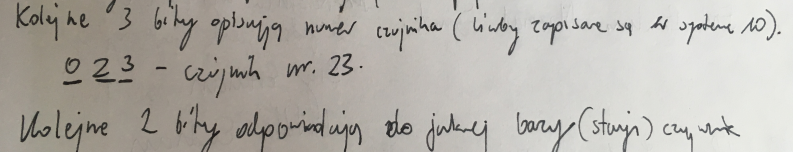 Kolejne 3 bity opisują numer czujnika (liczby zapisane są w systemie 10).
0 2 3 - czujnik nr. 23.
Kolejne 2 bity odpowiadają do jakiej bazy (stacji)